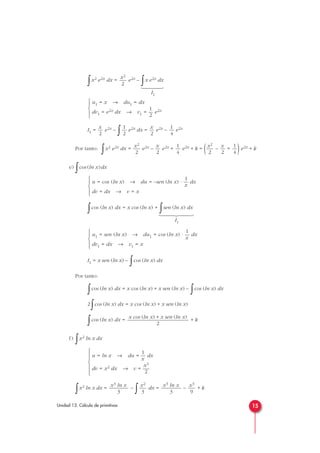 ∫x² e²ˣ dx = x²/2 e²ˣ – ∫x e²ˣ dx
I₁
u₁ = x → du₁ = dx
dv₁ = e²ˣ dx → v₁ = 1/2 e²ˣ
I₁ = x/2 e²ˣ – ∫1/2 e²ˣ dx = x/2 e²ˣ – 1/4 e²ˣ
Por tanto: ∫x² e²ˣ dx = x²/2 e²ˣ – x/2 e²ˣ + 1/4 e²ˣ + k = (x²/2 – x/2 + 1/4) e²ˣ + k
∫cos (ln x)dx
u = cos (ln x) → du = –sen (ln x) · 1/x dx
dv = dx → v = x
∫cos (ln x) dx = x cos (ln x) + ∫sen (ln x) dx
I₁
u₁ = sen (ln x) → du₁ = cos (ln x) · 1/x dx
dv₁ = dx → v₁ = x
I₁ = x sen (ln x) – ∫cos (ln x) dx
Por tanto:
∫cos (ln x) dx = x cos (ln x) + x sen (ln x) – ∫cos (ln x) dx
2∫cos (ln x) dx = x cos (ln x) + x sen (ln x)
∫cos (ln x) dx = (x cos (ln x) + x sen (ln x))/2 + k
f) ∫x² ln x dx
u = ln x → du = 1/x dx
dv = x² dx → v = x³/3
∫x² ln x dx = x³ ln x/3 – ∫x²/3 dx = x³ ln x/3 – x³/9 + k
Unidad 12. Cálculo de primitivas
15